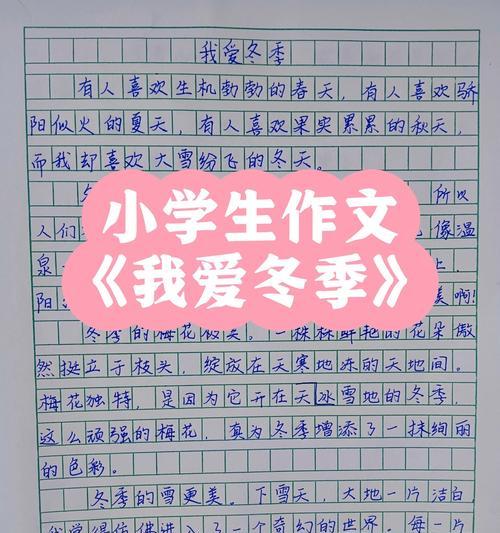 我爱冬季
有人喜欢生机勃勃的春天，有人喜欢骄
阳似火的夏天，有人喜欢果实累累的秋天，
而我却喜欢大雪纷飞的冬天。
所以
人们
像温
泉一
上，
阳
美啊！
小学生作文
《我爱冬季》
冬季的梅花极美。一株株鲜艳的花朵傲
然挺立于枝头，绽放在天寒地冻的天地间。
梅花独特，是因为它开在天冰雪地的冬季，
这么顽强的梅花，真为冬季增添了一抹绚丽
的色彩。
冬季的雪更美。下雪天，大地一片洁白，
我觉得仿佛进入了一个奇幻的世界。每一片